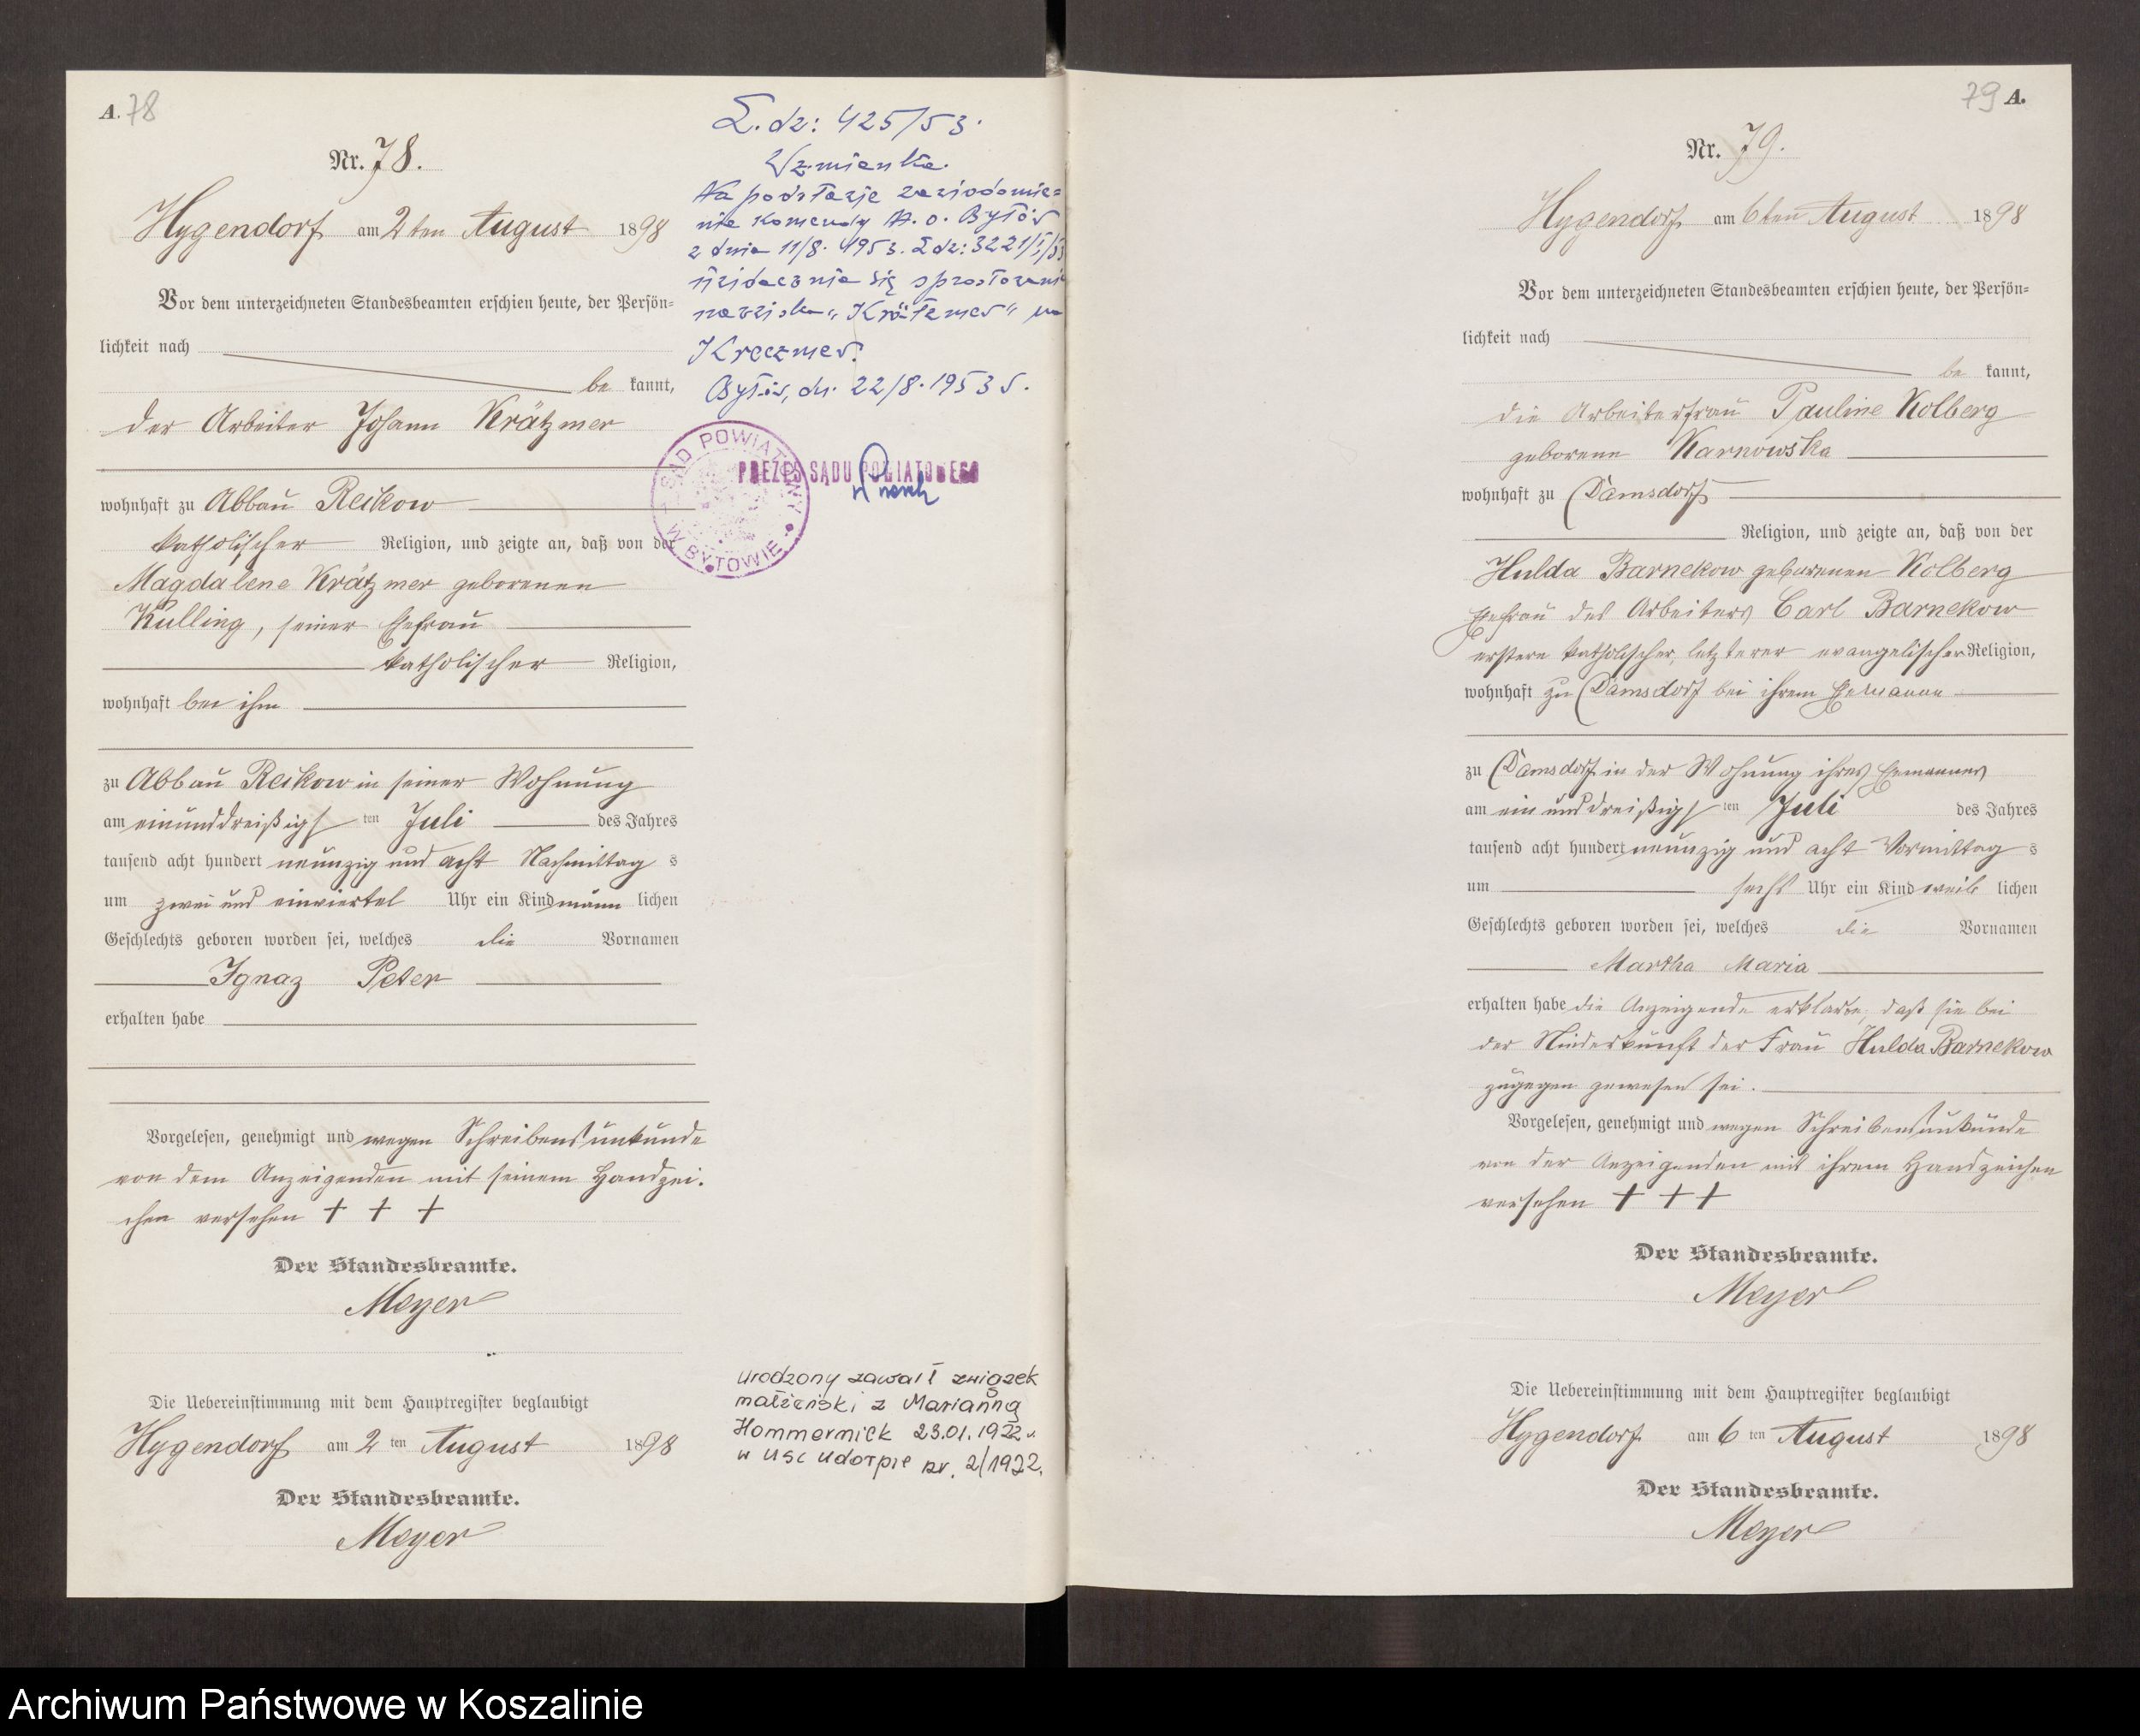 A. 78
Nr. 78.
Hygendorf am 2ten August 1898
Vor dem unterzeichneten Standesbeamten erschien heute, der Persön=
lichkeit nach
be kannt,
der Arbeiter Johann Krätzmer
wohnhaft zu Abbau Reikow
katholischer Religion, und zeigte an, daß von der
Magdalene Krätzmer geborenen
Kulling, seiner Ehefrau
katholischer Religion,
wohnhaft bei ihm
zu Abbau Reikow in seiner Wohnung
am einunddreißigs ten Juli des Jahres
tausend acht hundert neunzig und acht Nachmittag s
um zwei und einviertel Uhr ein Kind männ lichen
Geschlechts geboren worden sei, welches die Vornamen
Ignaz Peter
erhalten habe
Vorgelesen, genehmigt und wegen Schreibensunkunde
von dem Anzeigenden mit seinem Handzei-
chen versehen + + +
Der Standesbeamte.
Meyer
Die Uebereinstimmung mit dem Hauptregister beglaubigt
Hygendorf am 2 ten August 1898
Der Standesbeamte.
Meyer
L.dz: 425/53.
Wzmianka.
Na podstawie zawiadomie=
nia Komendy M.O. Bytów
z dnia 11/8. 1953. L.dz: 3221/I/53
uwidacznia się sprostowanie
nazwiska "Krätzmer" na
Kreczmer.
Bytów, dn. 22/8.1953 r.
PREZES SĄDU POWIATOWEGO
SĄD POWIATOWY W BYTOWIE
urodzony zawarł związek
małżeński z Marianną
Hommernick 23.01.1922 r.
w USC Udorpie nr. 2/1922.
79 A.
Nr. 79.
Hygendorf am 6ten August 1898
Vor dem unterzeichneten Standesbeamten erschien heute, der Persön=
lichkeit nach
be kannt,
die Arbeiterfrau Pauline Kolberg
geborene Karnowska
wohnhaft zu Damsdorf
Religion, und zeigte an, daß von der
Hulda Barnekow geborenen Kolberg
Ehefrau des Arbeiters Carl Barnekow
erstere katholischer, letzterer evangelischer Religion,
wohnhaft zu Damsdorf bei ihrem Ehemanne
zu Damsdorf in der Wohnung ihres Ehemannes
am ein und dreißigs ten Juli des Jahres
tausend acht hundert neunzig und acht Vormittag s
um sechs Uhr ein Kind weib lichen
Geschlechts geboren worden sei, welches die Vornamen
Martha Maria
erhalten habe die Anzeigende erklärte, daß sie bei
der Niederkunft der Frau Hulda Barnekow
zugegen gewesen sei.
Vorgelesen, genehmigt und wegen Schreibensunkunde
von der Anzeigenden mit ihrem Handzeichen
versehen + + +
Der Standesbeamte.
Meyer
Die Uebereinstimmung mit dem Hauptregister beglaubigt
Hygendorf am 6 ten August 1898
Der Standesbeamte.
Meyer
Archiwum Państwowe w Koszalinie